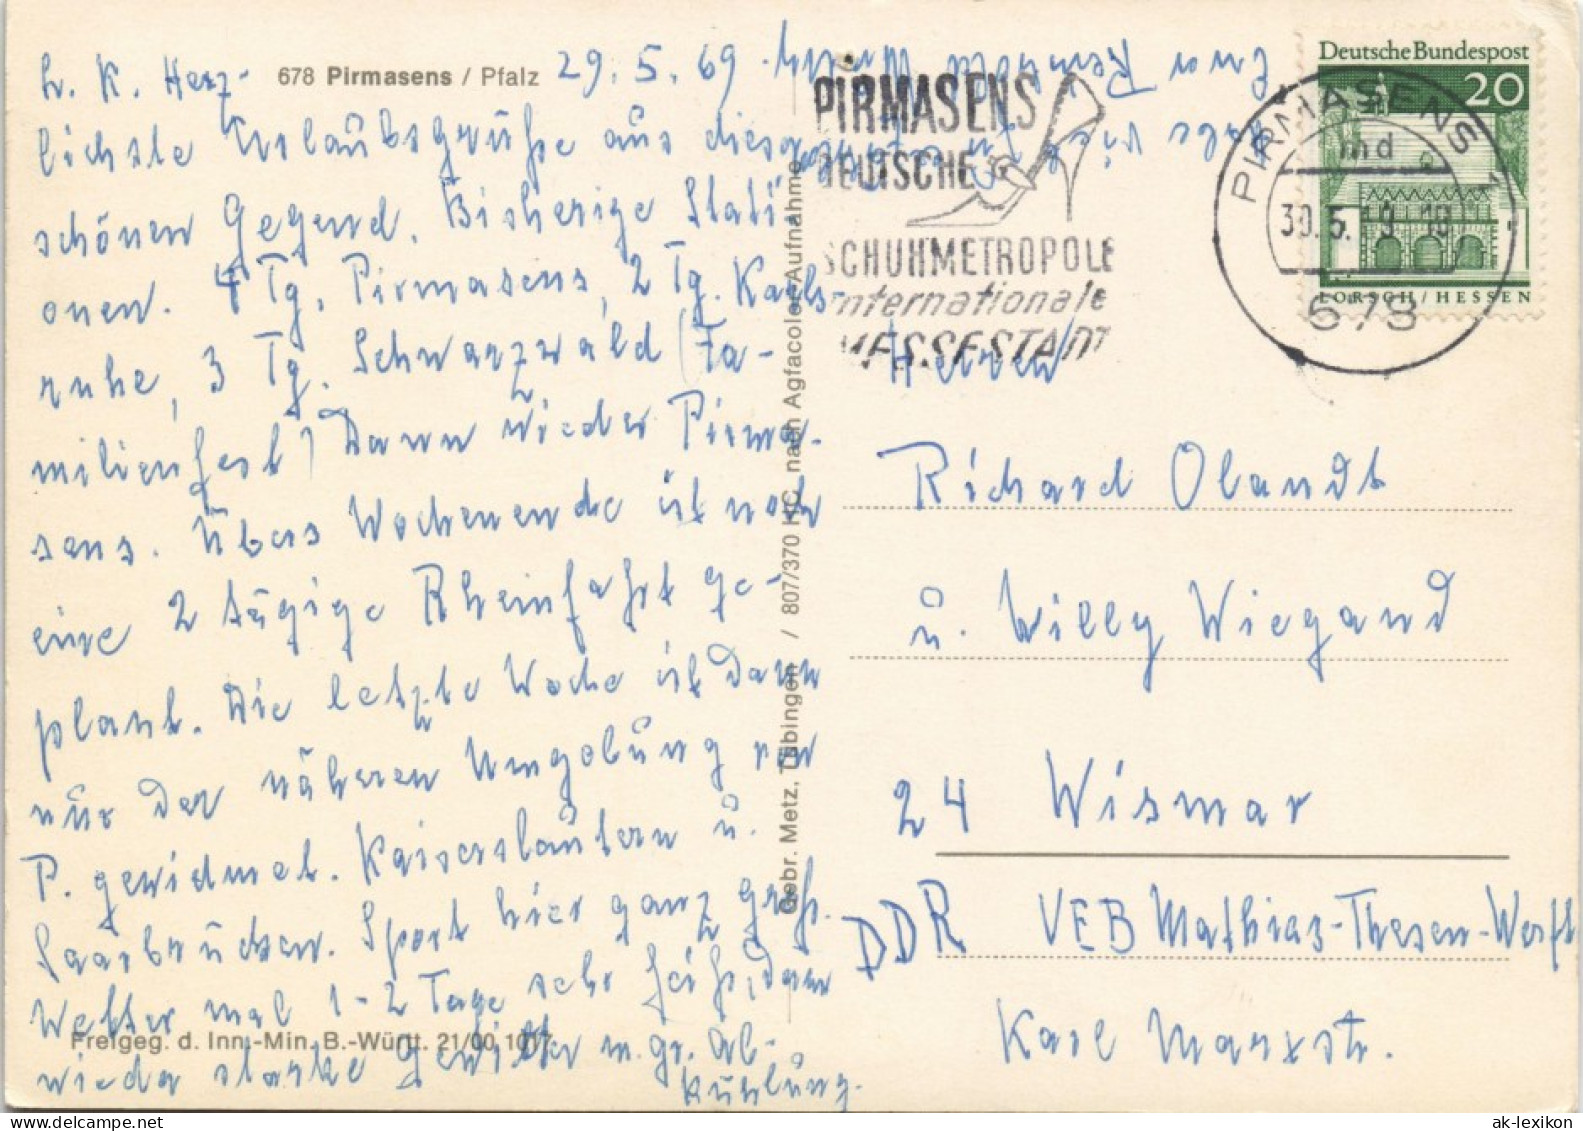 678 Pirmasens / Pfalz 29.5.69
L. K. Herz-
lichste Urlaubsgrüße aus dieser
schönen Gegend. Bisherige Stati-
onen. 4 Tg. Pirmasens, 2 Tg. Karls-
ruhe, 3 Tg. Schwarzwald (Fa-
milienfest) Dann wieder Pirma-
sens. Übers Wochenende ist noch
eine 2 tägige Rheinfahrt ge-
plant. Die letzte Woche ist dann
nur der näheren Umgebung von
P. gewidmet. Kaiserslautern u.
Saarbrücken. Sport hier ganz groß.
Wetter mal 1-2 Tage sehr heiß, dann
wieder starke Gewitter m. gr. Ab-
kühlung.
Freigeg. d. Inn.-Min. B.-Württ. 21/00 1017
Gebr. Metz, Tübingen / 807/370 KC nach Agfacolor-Aufnahme
PIRMASENS
DEUTSCHE
SCHUHMETROPOLE
internationale
MESSESTADT
Deutsche Bundespost
20
LORSCH/HESSEN
PIRMASENS 1
md
30.5.69-18
678
Herren
Richard Olandt
u. Willy Wiegand
24 Wismar
DDR VEB Mathias-Thesen-Werft
Karl Marxstr.
ak-lexikon